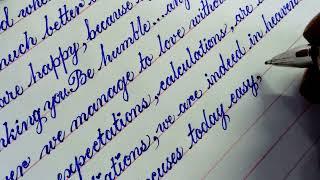 d wh
much better
are happy, because
nking you. Be humble...any
ver we manage to love witho
expectations, calculations, are
iations, we are indeed in heaven
cuses today easy,